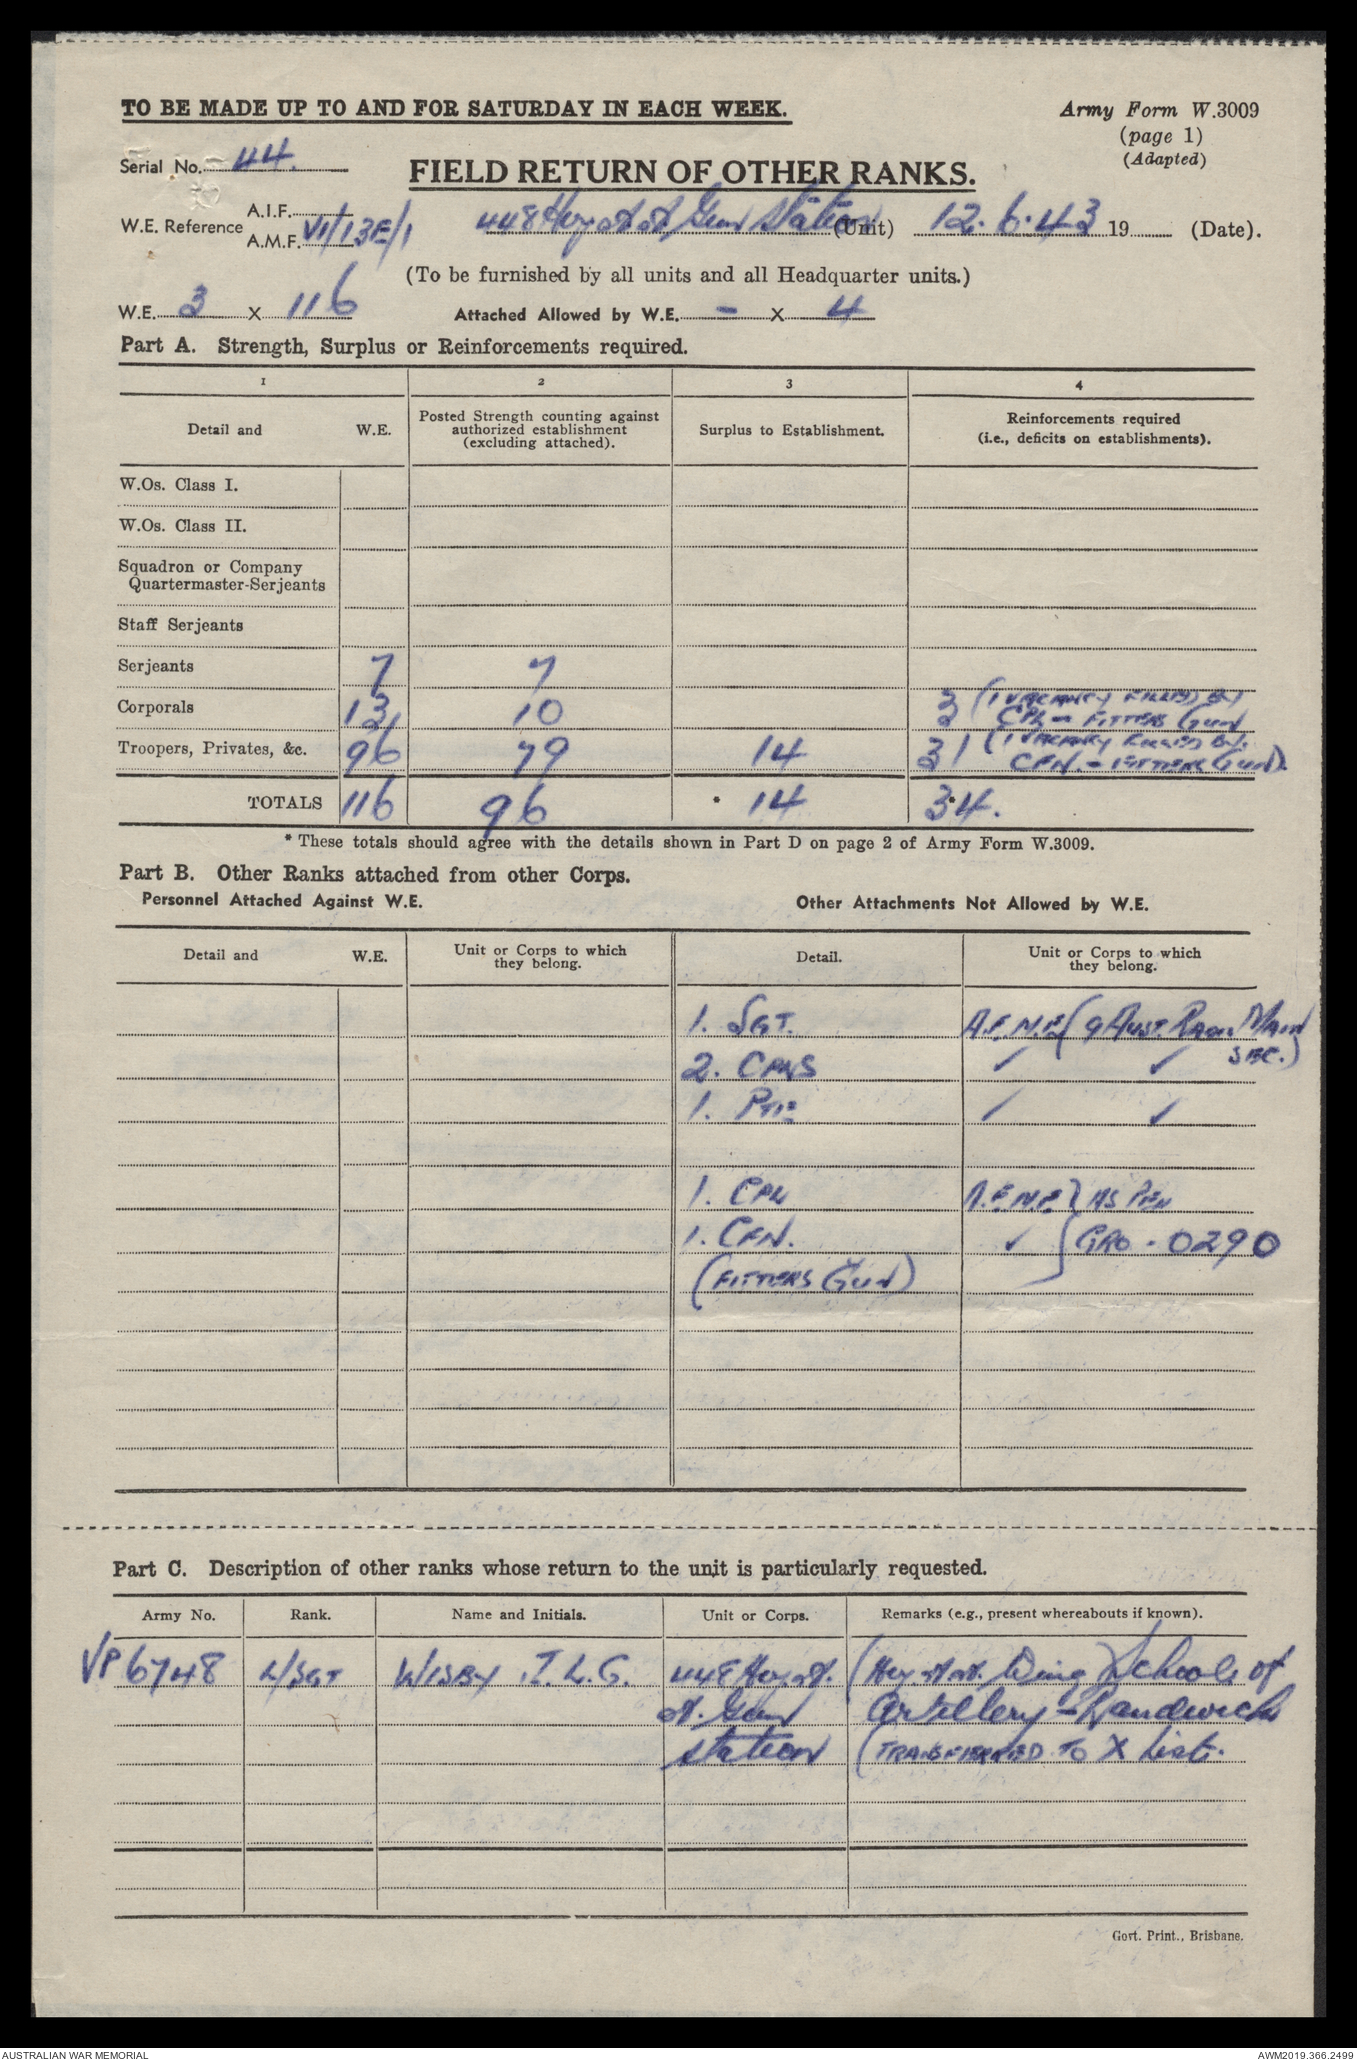 TO BE MADE UP TO AND FOR SATURDAY IN EACH WEEK.
Army Form W.3009
(page 1)
(Adapted)
Serial No. 44.
FIELD RETURN OF OTHER RANKS.
W.E. Reference A.I.F.
A.M.F. VI/13E/1
448 Hvy A A Gun Station (Unit) 12.6.43 19 (Date).
(To be furnished by all units and all Headquarter units.)
W.E. 3 X 116 Attached Allowed by W.E. - X 4
Part A. Strength, Surplus or Reinforcements required.
1 2 3 4
Detail and W.E.
Posted Strength counting against authorized establishment (excluding attached).
Surplus to Establishment.
Reinforcements required (i.e., deficits on establishments).
W.Os. Class I.
W.Os. Class II.
Squadron or Company
Quartermaster-Serjeants
Staff Serjeants
Serjeants 7 7
Corporals 13 10 3 (1 VACANCY FILLED BY
CPL - FITTERS GUN
Troopers, Privates, &c. 96 79 14 31 (1 VACANCY FILLED BY
CFN. - FITTERS GUN).
TOTALS 116 96 * 14 34.
* These totals should agree with the details shown in Part D on page 2 of Army Form W.3009.
Part B. Other Ranks attached from other Corps.
Personnel Attached Against W.E. Other Attachments Not Allowed by W.E.
Detail and W.E.
Unit or Corps to which they belong.
Detail.
Unit or Corps to which they belong.
1. SGT. A.E.M.E. (9 AUST. MAIN
SEC.)
2. CPLS ✓ ✓
1. PTE ✓ ✓
1. CPL A.E.M.E. } AS PER
1. CFN. ✓ } GRO - 0290
(FITTERS GUN)
Part C. Description of other ranks whose return to the unit is particularly requested.
Army No. Rank. Name and Initials. Unit or Corps. Remarks (e.g., present whereabouts if known).
VP6748 L/SGT WISBY I.L.G. 448 Hvy A. (Hvy. A.A. Wing) Schools of
A. Gun Artillery - Randwick
Station (TRANSFERRED TO X List.
Govt. Print., Brisbane.
AUSTRALIAN WAR MEMORIAL
AWM2019.366.2499